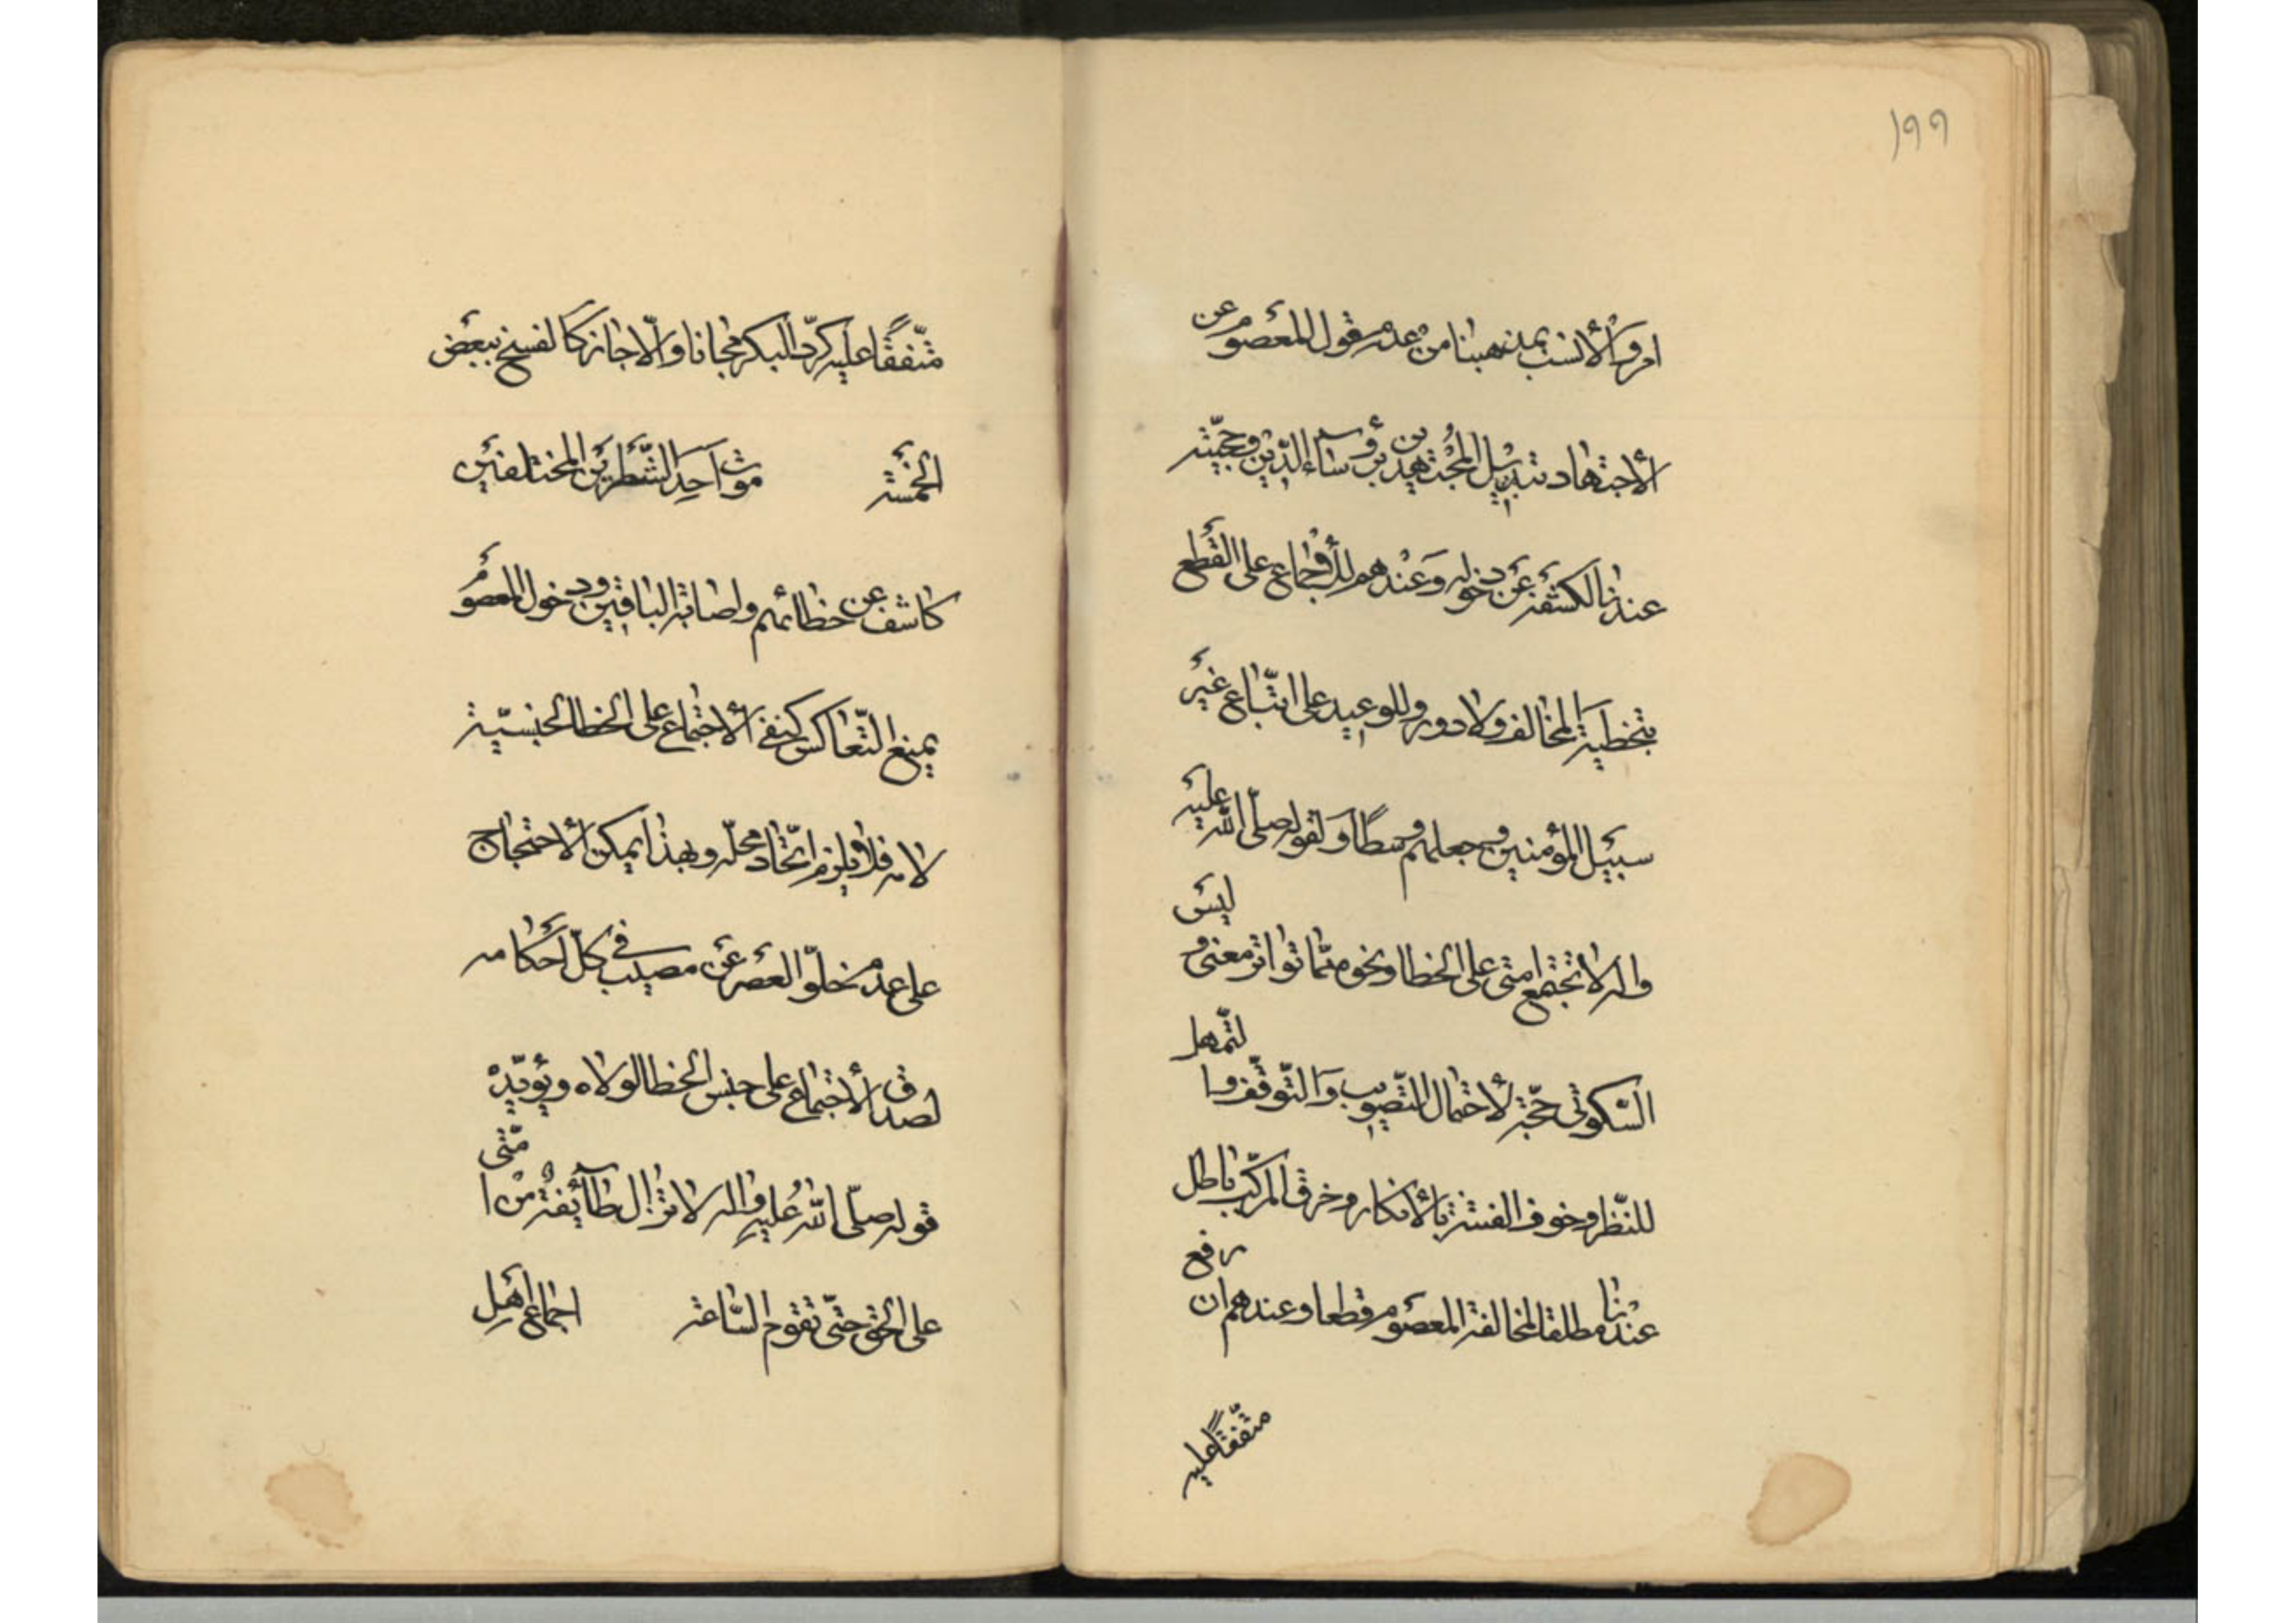 ١٩٩
امر والأنسب بمذهبنا من عدم قول المعصوم عن
الأجتهاد تبديل المجتهدين برؤساء الدين وحجيته
عندنا لكشفه عن دخوله وعندهم للأجماع على القطع
بتخطية المخالف ولا دور وللوعيد على اتباع غير
سبيل المؤمنين وجعلهم وسطا ولقوله صلى الله عليه
واله لا تجتمع امتى على الخطا ونحوه مما تواتر معنى وليس
السكوتى حجة لأحتمال التصويب والتوقف والتمهل
للنظر وخوف الفتنة بالأنكار وخرق المركب باطل
عندنا مطلقا لمخالفة المعصوم قطعا وعندهم ان رفع
متفقا عليه
متفقا عليه كرد البكر مجانا والا جاز كالفسخ ببعض
الخمسة موت احد الشطرين المختلفين
كاشف عن خطائهم واصابة الباقين ودخول المعصوم
يمنع التعاكس كنفى الأجتماع على الخطا لجنسية
لامه فلا يلزم اتحاد محله وبهذا يمكن الأحتجاج
على عدم خلو العصر عن مصيب فى كل احكامه
لصدق الأجتماع على جنس الخطا لولاه ويؤيده
قوله صلى الله عليه واله لا تزال طائفة من امتى
على الحق حتى تقوم الساعة اجماع اهل